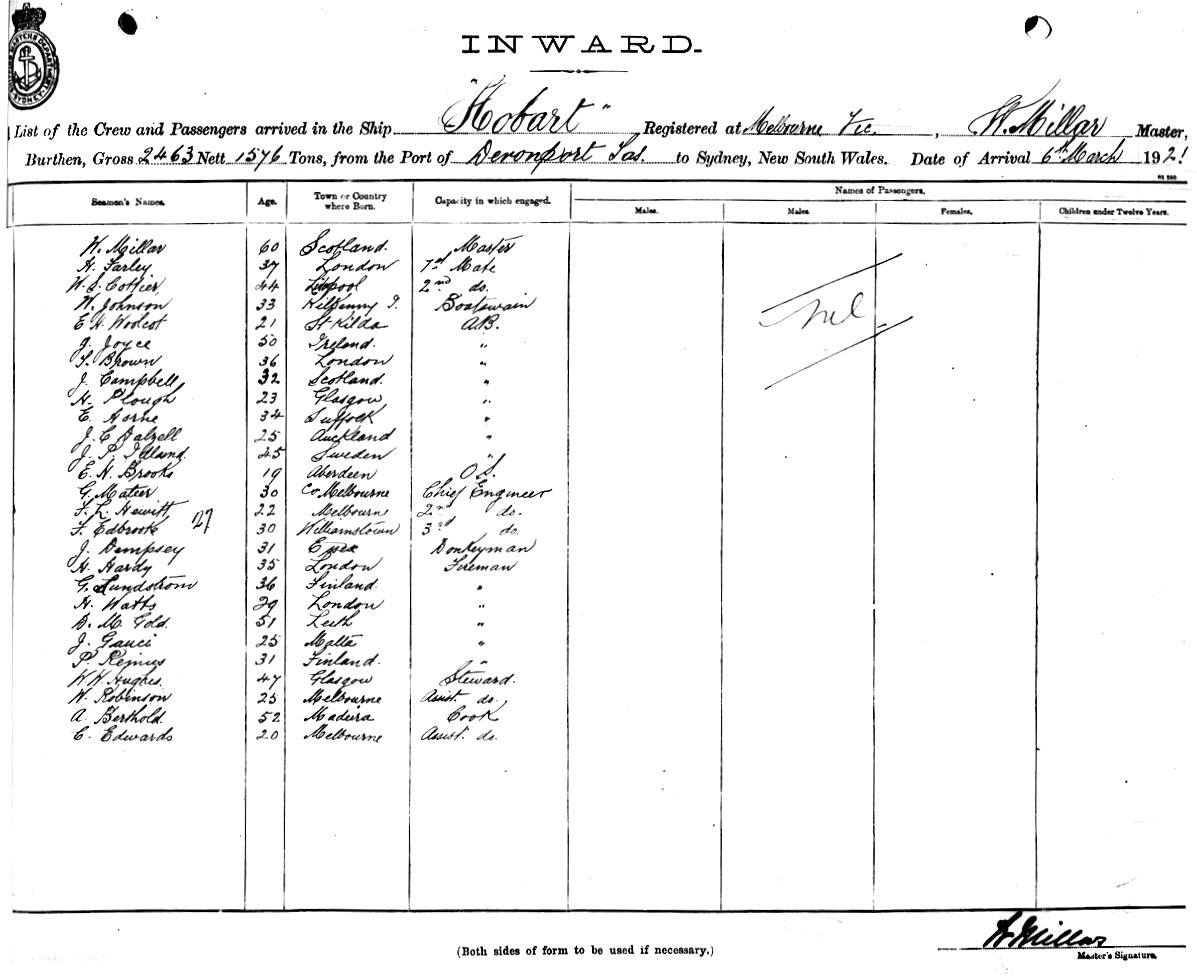 INWARD.
List of the Crew and Passengers arrived in the Ship "Hobart", Registered at Melbourne Vic., W. Millar Master,
Burthen, Gross 2463 Nett 1576 Tons, from the Port of Devonport Tas. to Sydney, New South Wales. Date of Arrival 6th March 1921
Names of Passengers.
Seamen's Names. Age. Town or Country where Born. Capacity in which engaged. Males. Males. Females. Children under Twelve Years.
W. Millar 60 Scotland. Master
H. Farley 37 London 1st Mate
W. J. Cottier 44 L'pool 2nd do.
W. Johnson 33 Kilkenny I. Boatswain
E. H. Woolcot 21 St Kilda A.B.
J. Joyce 50 Ireland. "
T. Brown 36 London "
J. Campbell 32 Scotland. "
H. Plough 23 Glasgow "
E. Horne 34 Suffolk "
J. C. Dalzell 25 Auckland "
J. P. 45 Sweden "
E. H. Brooks 19 Aberdeen O.S.
G. Mateer 30 Co Melbourne Chief Engineer
F. L. Hewitt 22 Melbourne 2nd do.
F. Edbrooke 30 Williamstown 3rd do.
27
J. Dempsey 31 Donkeyman
H. Hardy 35 London Fireman
G. Lundström 36 Finland "
H. Watts 29 London "
D. M. Gold 51 Leith "
J. Gauci 25 Malta "
P. 31 Finland. "
W. W. Hughes. 47 Glasgow Steward.
W. Robinson 25 Melbourne Assist. do.
A. Berthold 52 Madeira Cook
C. Edwards 20 Melbourne Assist. do.
Nil
W Millar
Master's Signature.
(Both sides of form to be used if necessary.)